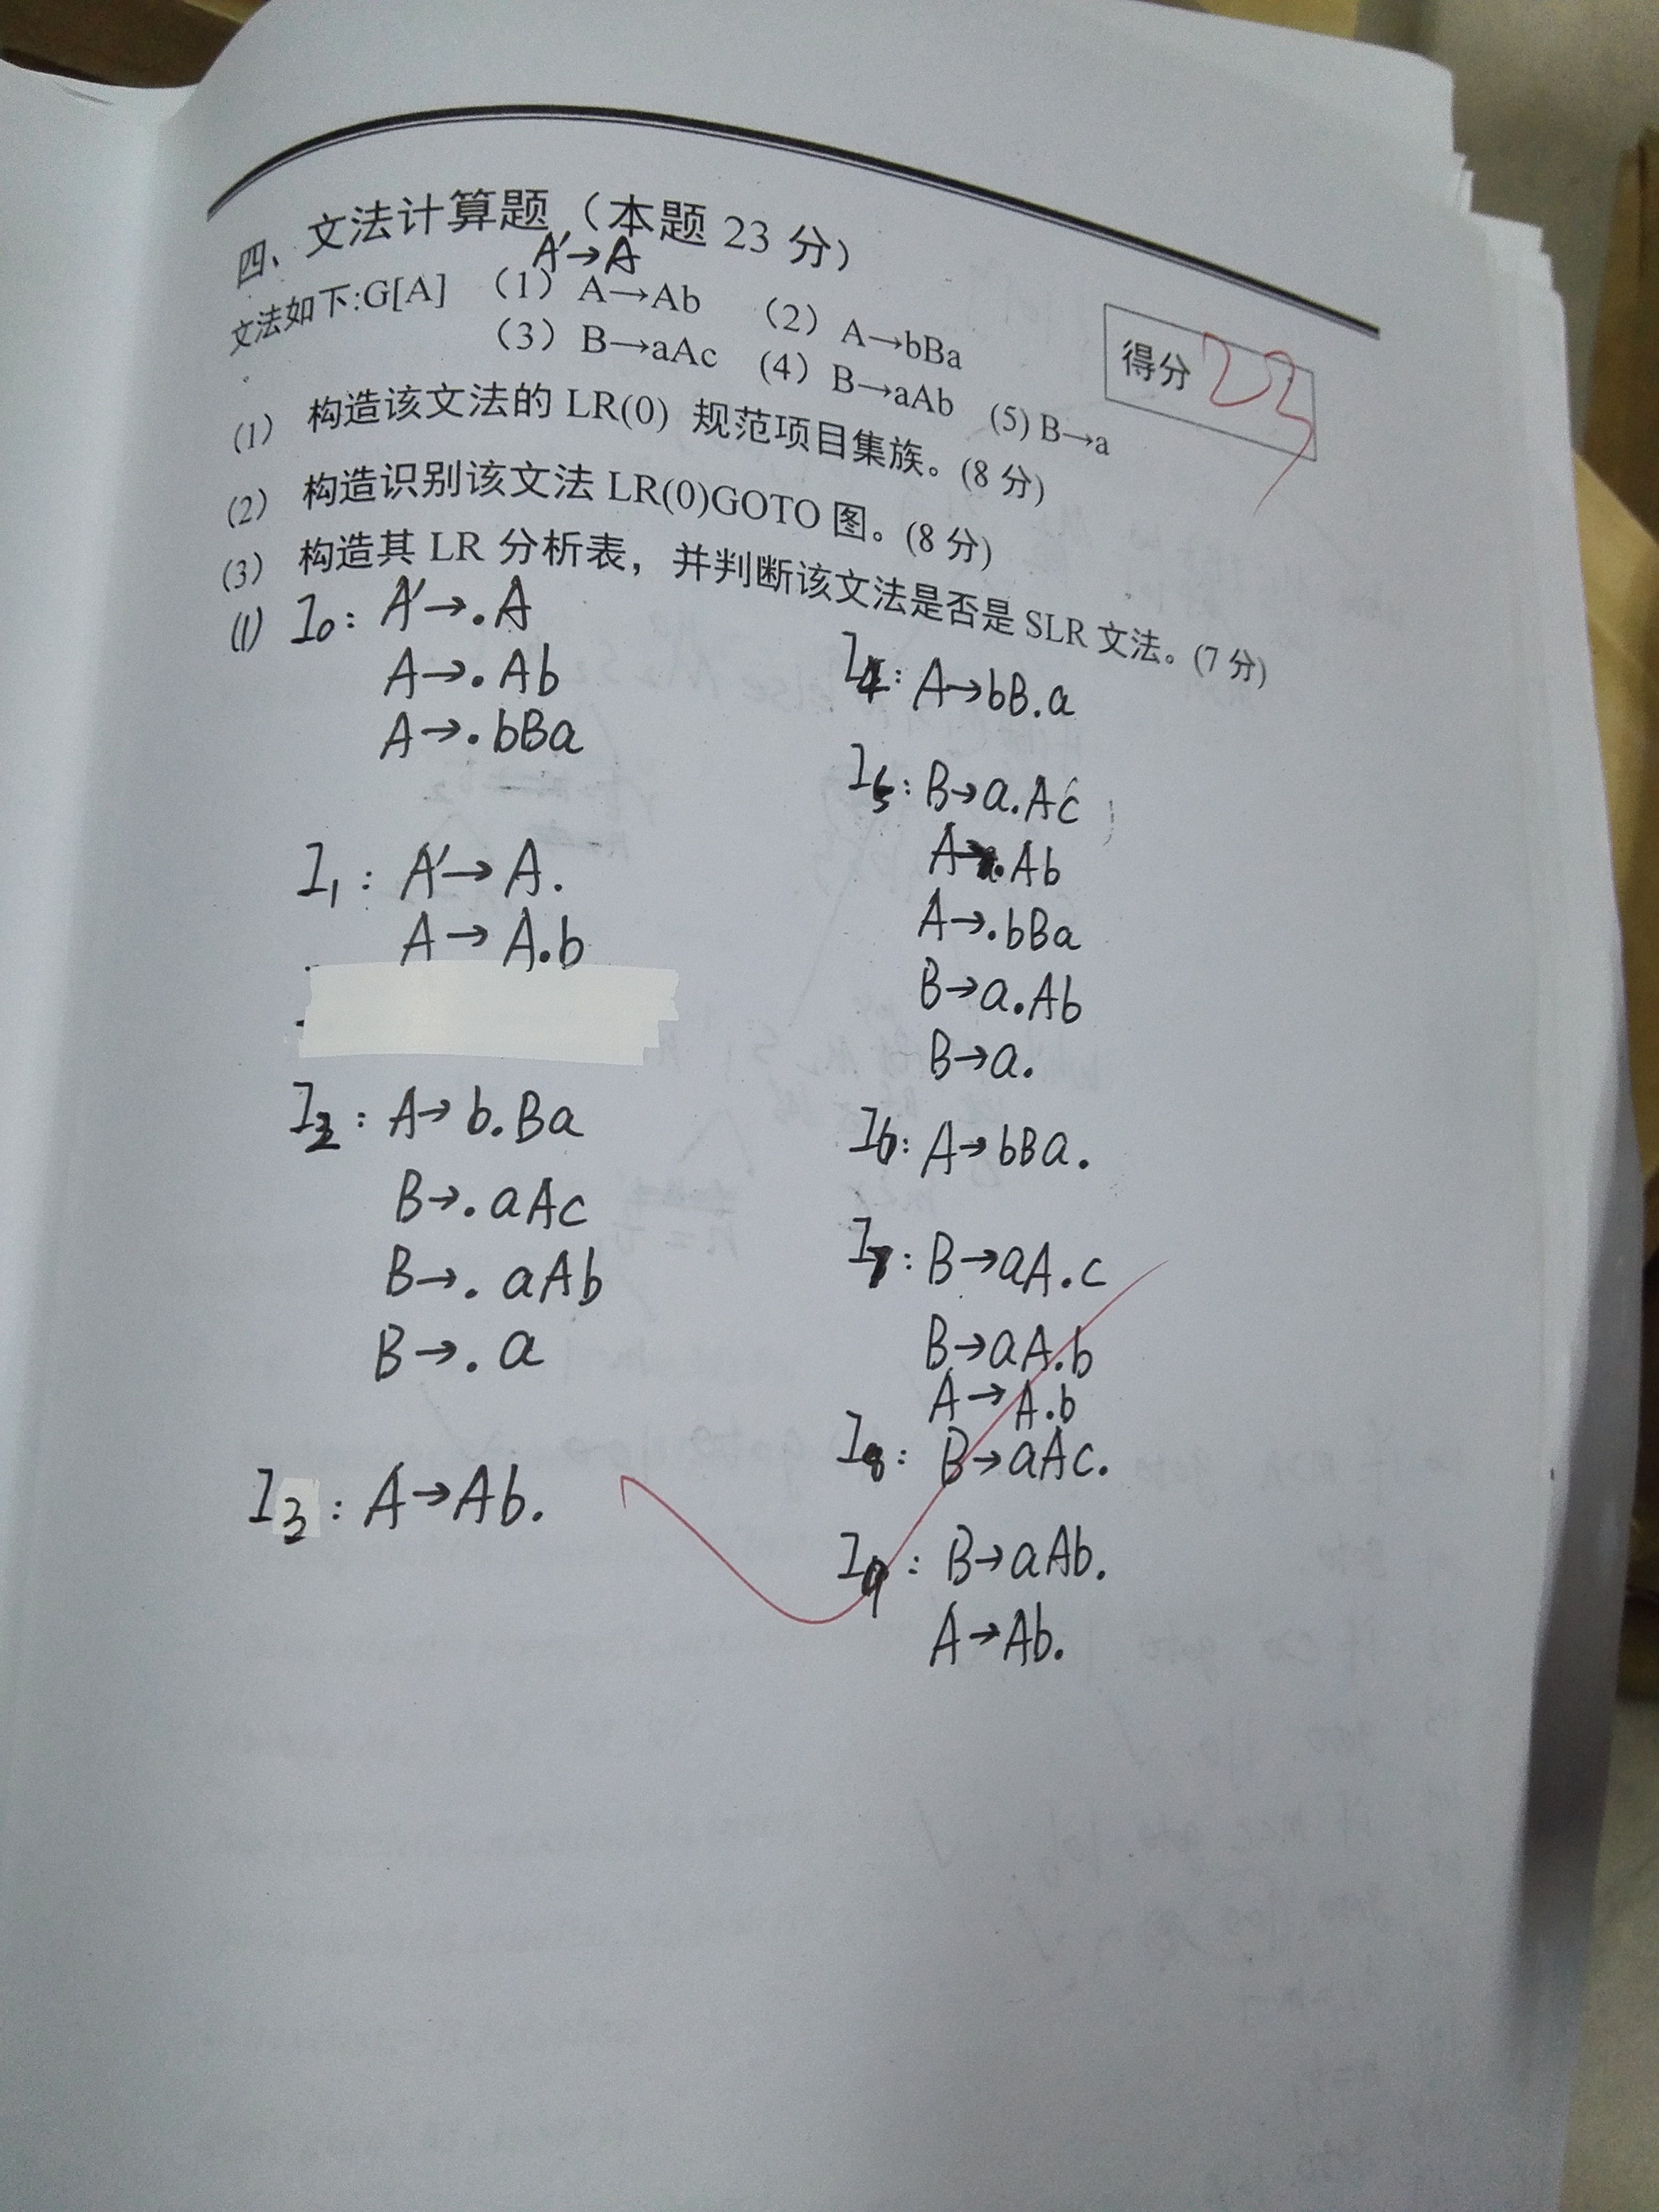 四、文法计算题（本题 23 分）
A'→A
文法如下:G[A] （1）A→Ab （2）A→bBa
（3）B→aAc （4）B→aAb (5) B→a
得分 23
(1) 构造该文法的 LR(0) 规范项目集族。(8 分)
(2) 构造识别该文法 LR(0)GOTO 图。(8 分)
(3) 构造其 LR 分析表，并判断该文法是否是 SLR 文法。(7 分)
(1) I0: A'→.A
A→.Ab
A→.bBa
I1: A'→A.
A→A.b
I2: A→b.Ba
B→.aAc
B→.aAb
B→.a
I3: A→Ab.
I4: A→bB.a
I5: B→a.Ac
A→.Ab
A→.bBa
B→a.Ab
B→a.
I6: A→bBa.
I7: B→aA.c
B→aA.b
A→A.b
I8: B→aAc.
I9: B→aAb.
A→Ab.